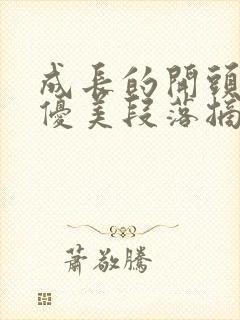 成長的開頭
優美段落摘
蕭敬騰